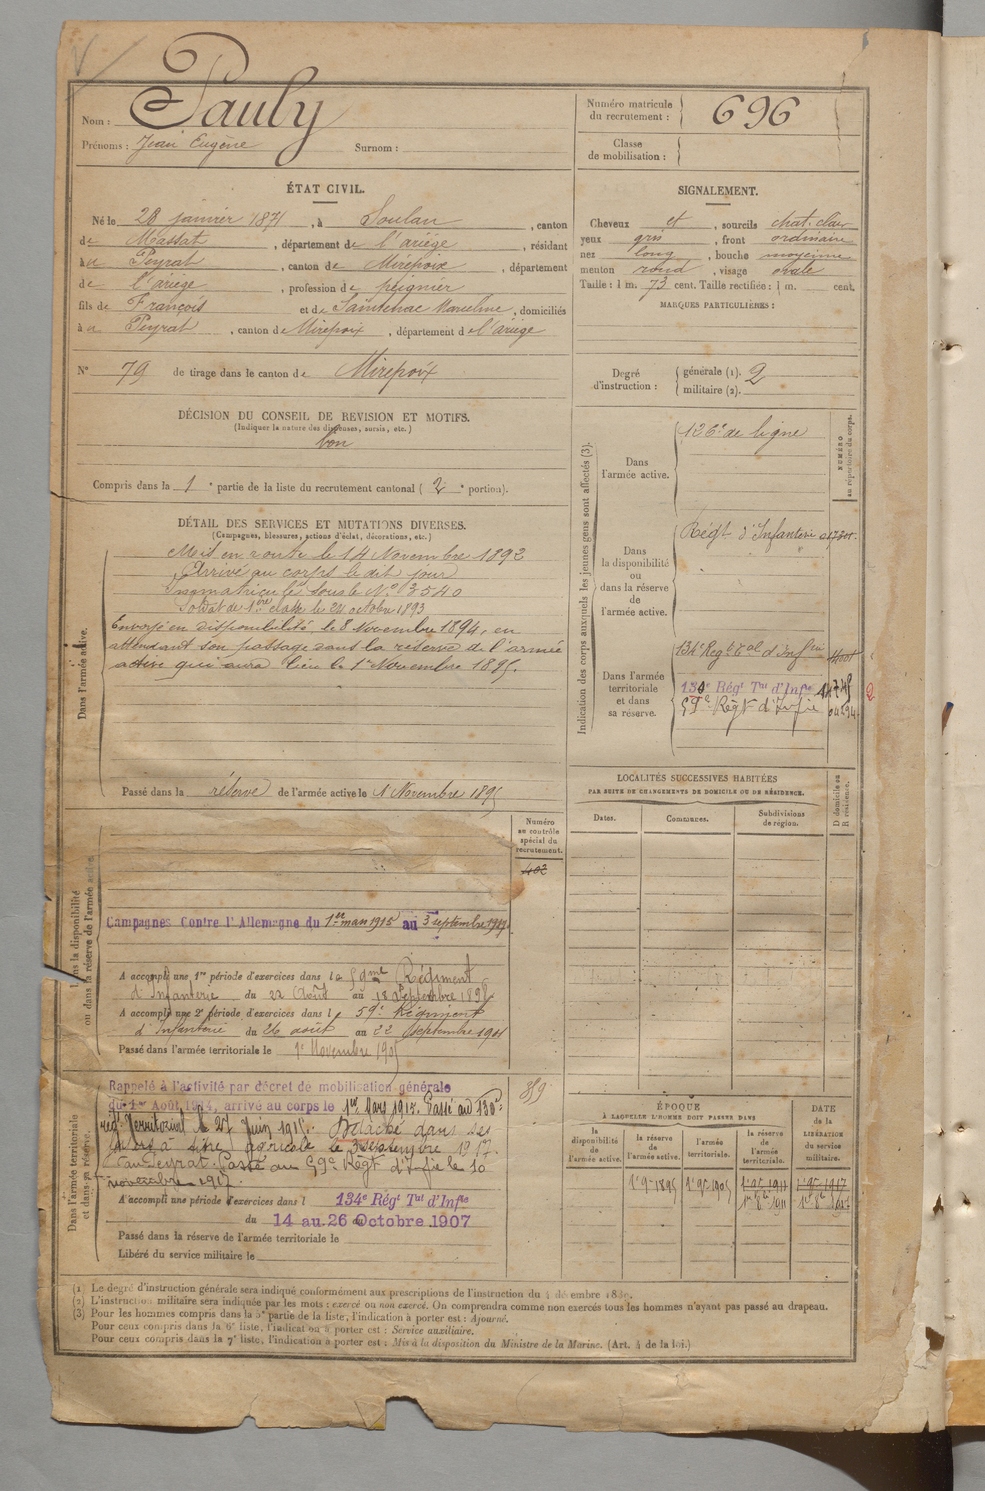 Nom : Pauly
Prénoms : Jean Eugène Surnom :
Numéro matricule du recrutement : 696
Classe de mobilisation :
ÉTAT CIVIL.
Né le 28 janvier 1871, à Soulan, canton
de Massat, département de l'ariège, résidant
à u Peyrat, canton de Mirepoix, département
de l'ariège, profession de peignier
fils de François et de Saintenac Marceline, domiciliés
à u Peyrat, canton de Mirepoix, département de l'ariège
N° 79 de tirage dans le canton de Mirepoix
SIGNALEMENT.
Cheveux et, sourcils chat. clair
yeux gris, front ordinaire
nez long, bouche moyenne
menton rond, visage ovale
Taille : 1 m. 73 cent. Taille rectifiée : 1 m. cent.
MARQUES PARTICULIÈRES :
Degré d'instruction : générale (1). 2
militaire (2).
DÉCISION DU CONSEIL DE REVISION ET MOTIFS.
(Indiquer la nature des dispenses, sursis, etc.)
bon
Compris dans la 1e partie de la liste du recrutement cantonal (2e portion).
DÉTAIL DES SERVICES ET MUTATIONS DIVERSES.
(Campagnes, blessures, actions d'éclat, décorations, etc.)
Dans l'armée active.
Mis en route le 14 Novembre 1892
Arrivé au corps le dit jour
Immatriculé sous le N° 3540
Soldat de 1ère classe le 24 octobre 1893
Envoyé en disponibilité le 8 Novembre 1894, en
attendant son passage dans la réserve de l'armée
active qui aura lieu le 1er Novembre 1895.
Passé dans la réserve de l'armée active le 1 Novembre 1895
Indication des corps auxquels les jeunes gens sont affectés (3).
NUMÉRO au répertoire du corps.
Dans l'armée active.
126e de ligne
Dans la disponibilité ou dans la réserve de l'armée active.
Régt d'Infanterie
Dans l'armée territoriale et dans sa réserve.
134e Régt Tal d'Infrie
130e Régt Tal d'Infie
59e Régt d'Infie
2
LOCALITÉS SUCCESSIVES HABITÉES
PAR SUITE DE CHANGEMENTS DE DOMICILE OU DE RÉSIDENCE.
Dates. Communes. Subdivisions de région. D domicile ou R résidence.
Dans la disponibilité ou dans la réserve de l'armée active.
Numéro au contrôle spécial du recrutement.
402
Campagnes Contre l'Allemagne du 1er mars 1915 au 3 septembre 1917
A accompli une 1re période d'exercices dans le 59me Régiment
d'Infanterie du 22 Août au 18 Septembre 1898
A accompli une 2e période d'exercices dans le 59e Régiment
d'Infanterie du 26 août au 22 Septembre 1901
Passé dans l'armée territoriale le 1er Novembre 1905
Dans l'armée territoriale et dans sa réserve.
389
Rappelé à l'activité par décret de mobilisation générale
du 1er Août 1914, arrivé au corps le 1er Mars 1915. Passé au 130e
régt Territorial le 27 Juin 1915. Détaché dans ses
foyers à titre agricole le 3 septembre 1917.
au Peyrat. Passé au 59e Régt d'Infie le 10
novembre 1917.
A accompli une période d'exercices dans l 134e Régt Tal d'Infie
du 14 au 26 Octobre 1907
Passé dans la réserve de l'armée territoriale le
Libéré du service militaire le
ÉPOQUE
À LAQUELLE L'HOMME DOIT PASSER DANS
la disponibilité de l'armée active.
la réserve de l'armée active. 1er 9re 1895
l'armée territoriale. 1er 9re 1905
la réserve de l'armée territoriale. 1er 9re 1911
1er 8bre 1911
DATE de la LIBÉRATION du service militaire.
1er 9re 1917
1er 8bre 1917
(1) Le degré d'instruction générale sera indiqué conformément aux prescriptions de l'instruction du 4 décembre 1889.
(2) L'instruction militaire sera indiquée par les mots : exercé ou non exercé. On comprendra comme non exercés tous les hommes n'ayant pas passé au drapeau.
(3) Pour les hommes compris dans la 5e partie de la liste, l'indication à porter est : Ajourné.
Pour ceux compris dans la 6e liste, l'indication à porter est : Service auxiliaire.
Pour ceux compris dans la 7e liste, l'indication à porter est : Mis à la disposition du Ministre de la Marine. (Art. 4 de la loi.)